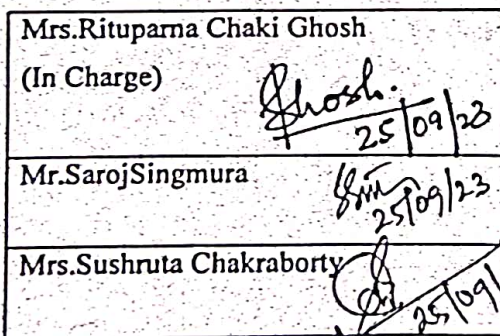 Mrs.Rituparna Chaki Ghosh
(In Charge)
Ghosh.
25/09/23
Mr.SarojSingmura
25/09/23
Mrs.Sushruta Chakraborty
25/09/